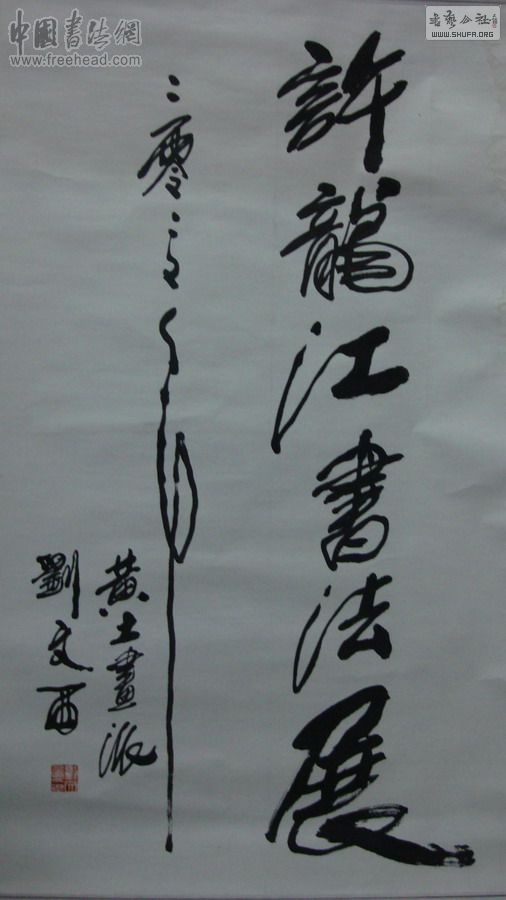 許龍江書法展
黃土畫派
劉文西
中國書法網
www.freehead.com
書藝公社
www.SHUFA.ORG